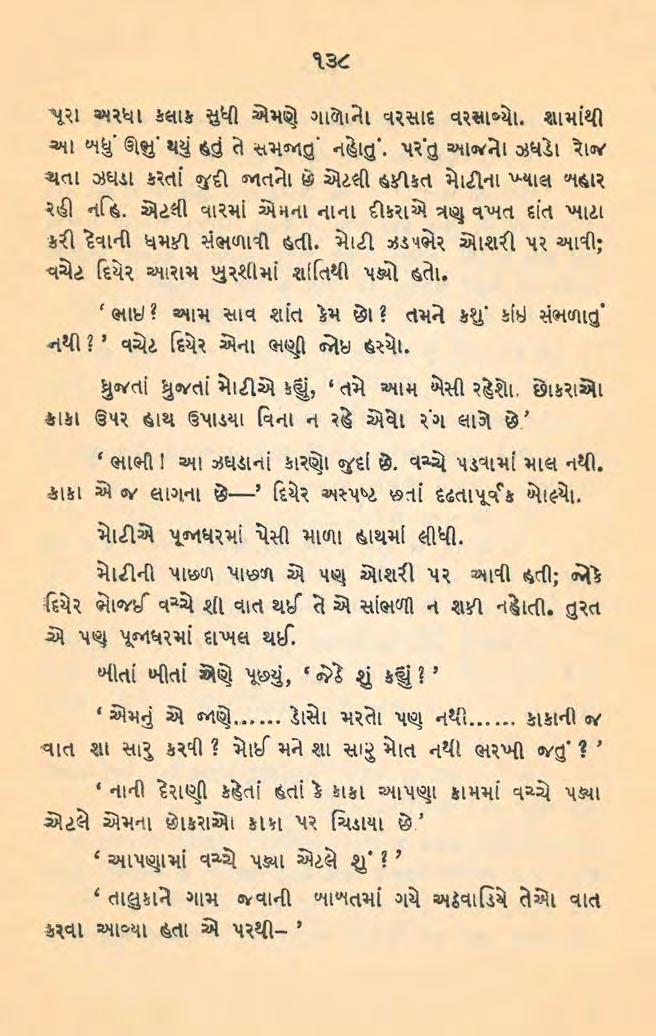 ૧૩૮
પૂરા અરધા કલાક સુધી એમણે ગાળોનો વરસાદ વરસાવ્યો. શામાંથી
આ બધું ઊભું થયું હતું તે સમજાતું નહોતું. પરંતુ આજનો ઝઘડો રોજ
થતા ઝઘડા કરતાં જુદી જાતનો છે એટલી હકીકત મોટીના ખ્યાલ બહાર
રહી નહિ. એટલી વારમાં એમના નાના દીકરાએ ત્રણ વખત દાંત ખાટા
કરી દેવાની ધમકી સંભળાવી હતી. મોટી ઝડપભેર ઓશરી પર આવી;
વચેટ દિયેર આરામ ખુરશીમાં શાંતિથી પડ્યો હતો.
‘ ભાઇ? આમ સાવ શાંત કેમ છો? તમને કશું કાંઇ સંભળાતું
નથી? ’ વચેટ દિયેર એના ભણી જોઇ હસ્યો.
ધ્રુજતાં ધ્રુજતાં મોટીએ કહ્યું, ‘ તમે આમ બેસી રહેશો. છોકરાઓ
કાકા ઉપર હાથ ઉપાડયા વિના ન રહે એવો રંગ લાગે છે.’
‘ ભાભી! આ ઝઘડાનાં કારણો જુદાં છે. વચ્ચે પડવામાં માલ નથી.
કાકા એ જ લાગના છે—’ દિયેર અસ્પષ્ટ છતાં દૃઢતાપૂર્વક બોલ્યો.
મોટીએ પૂજાઘરમાં પેસી માળા હાથમાં લીધી.
મોટીની પાછળ પાછળ એ પણ ઓશરી પર આવી હતી; જોકે
દિયેર ભોજઈ વચ્ચે શી વાત થઈ તે એ સાંભળી ન શકી નહોતી. તુરત
એ પણ પૂજાઘરમાં દાખલ થઈ.
બીતાં બીતાં એણે પૂછયું, ‘ જેઠે શું કહ્યું? ’
‘ એમનું એ જાણે...... ડોસો મરતો પણ નથી...... કાકાની જ
વાત શા સારુ કરવી? મોઈ મને શા સારુ મોત નથી ભરખી જતું? ’
‘ નાની દેરાણી કહેતાં હતાં કે કાકા આપણા કામમાં વચ્ચે પડ્યા
એટલે એમના છોકરાઓ કાકા પર ચિડાયા છે.’
‘ આપણામાં વચ્ચે પડ્યા એટલે શું? ’
‘ તાલુકાને ગામ જવાની બાબતમાં ગયે અઠવાડિયે તેઓ વાત
કરવા આવ્યા હતા એ પરથી– ’